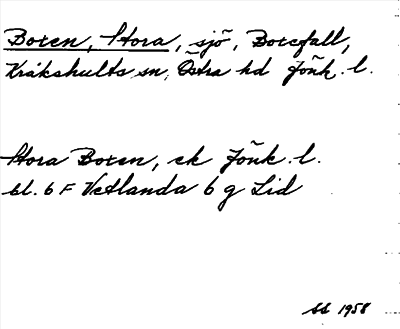 Boren, Stora, sjö, Borefall,
Kråkshults sn, Östra hd Jönk. l.
Stora Boren, ek Jönk. l.
bl. 6 F Vetlanda 6 g Lid
SS 1958